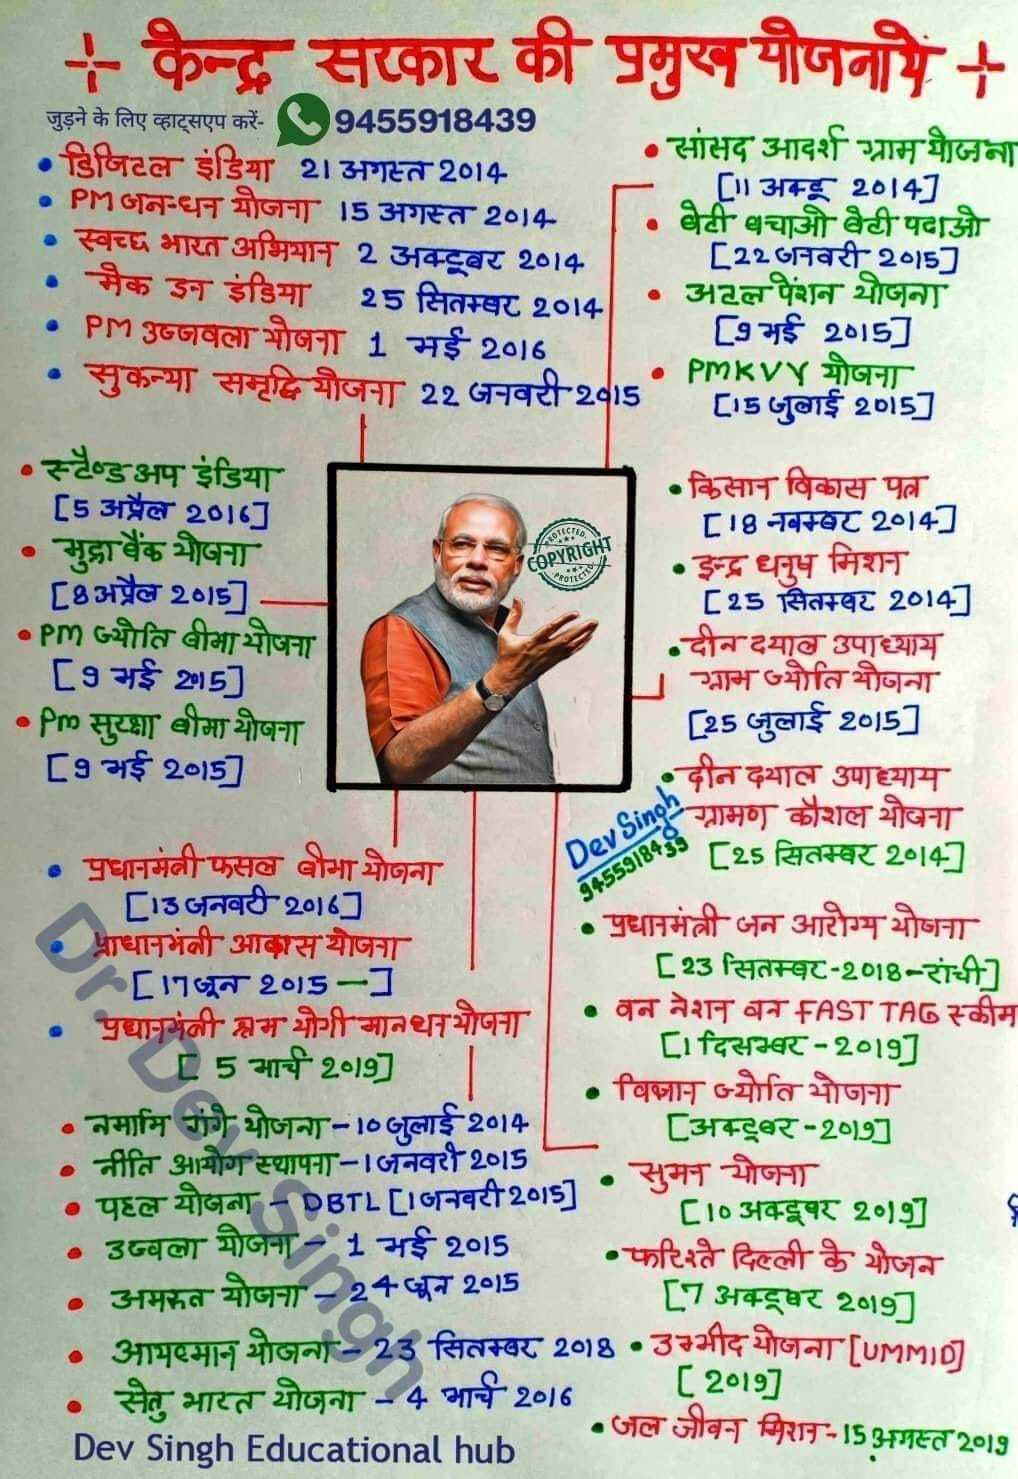 केन्द्र सरकार की प्रमुख योजनायें
जुड़ने के लिए व्हाट्सएप करें- 9455918439
डिजिटल इंडिया 21 अगस्त 2014
PM जन-धन योजना 15 अगस्त 2014
स्वच्छ भारत अभियान 2 अक्टूबर 2014
मैक इन इंडिया 25 सितम्बर 2014
PM उज्जवला योजना 1 मई 2016
सुकन्या समृद्धि योजना 22 जनवरी 2015
सांसद आदर्श ग्राम योजना
[11 अक्टू 2014]
बेटी बचाओ बेटी पढाओ
[22 जनवरी 2015]
अटल पेंशन योजना
[9 मई 2015]
PMKVY योजना
[15 जुलाई 2015]
स्टैण्ड अप इंडिया
[5 अप्रैल 2016]
मुद्रा बैंक योजना
[8 अप्रैल 2015]
PM ज्योति बीमा योजना
[9 मई 2015]
Pm सुरक्षा बीमा योजना
[9 मई 2015]
COPYRIGHT
PROTECTED
किसान विकास पत्र
[18 नवम्बर 2014]
इन्द्र धनुष मिशन
[25 सितम्बर 2014]
दीन दयाल उपाध्याय
ग्राम ज्योति योजना
[25 जुलाई 2015]
दीन दयाल उपाध्याय
ग्रामण कौशल योजना
[25 सितम्बर 2014]
Dev Singh
9455918439
प्रधानमंत्री फसल बीमा योजना
[13 जनवरी 2016]
प्राधानमंत्री आवास योजना
[17 जून 2015 —]
प्रधानमंत्री श्रम योगी मानधन योजना
[5 मार्च 2019]
नमामि गंगे योजना - 10 जुलाई 2014
नीति आयोग स्थापना - 1 जनवरी 2015
पहल योजना - DBTL [1 जनवरी 2015]
उज्वला योजना - 1 मई 2015
अमरूत योजना - 24 जून 2015
आयुष्मान योजना - 23 सितम्बर 2018
सेतु भारत योजना - 4 मार्च 2016
प्रधानमंत्री जन आरोग्य योजना
[23 सितम्बर - 2018 - रांची]
वन नेशन वन FAST TAG स्कीम
[1 दिसम्बर - 2019]
विज्ञान ज्योति योजना
[अक्टूबर - 2019]
सुमन योजना
[10 अक्टूबर 2019]
फरिश्ते दिल्ली के योजन
[7 अक्टूबर 2019]
उम्मीद योजना [UMMID]
[2019]
जल जीवन मिशन - 15 अगस्त 2019
Dr. Dev Singh
Dev Singh Educational hub